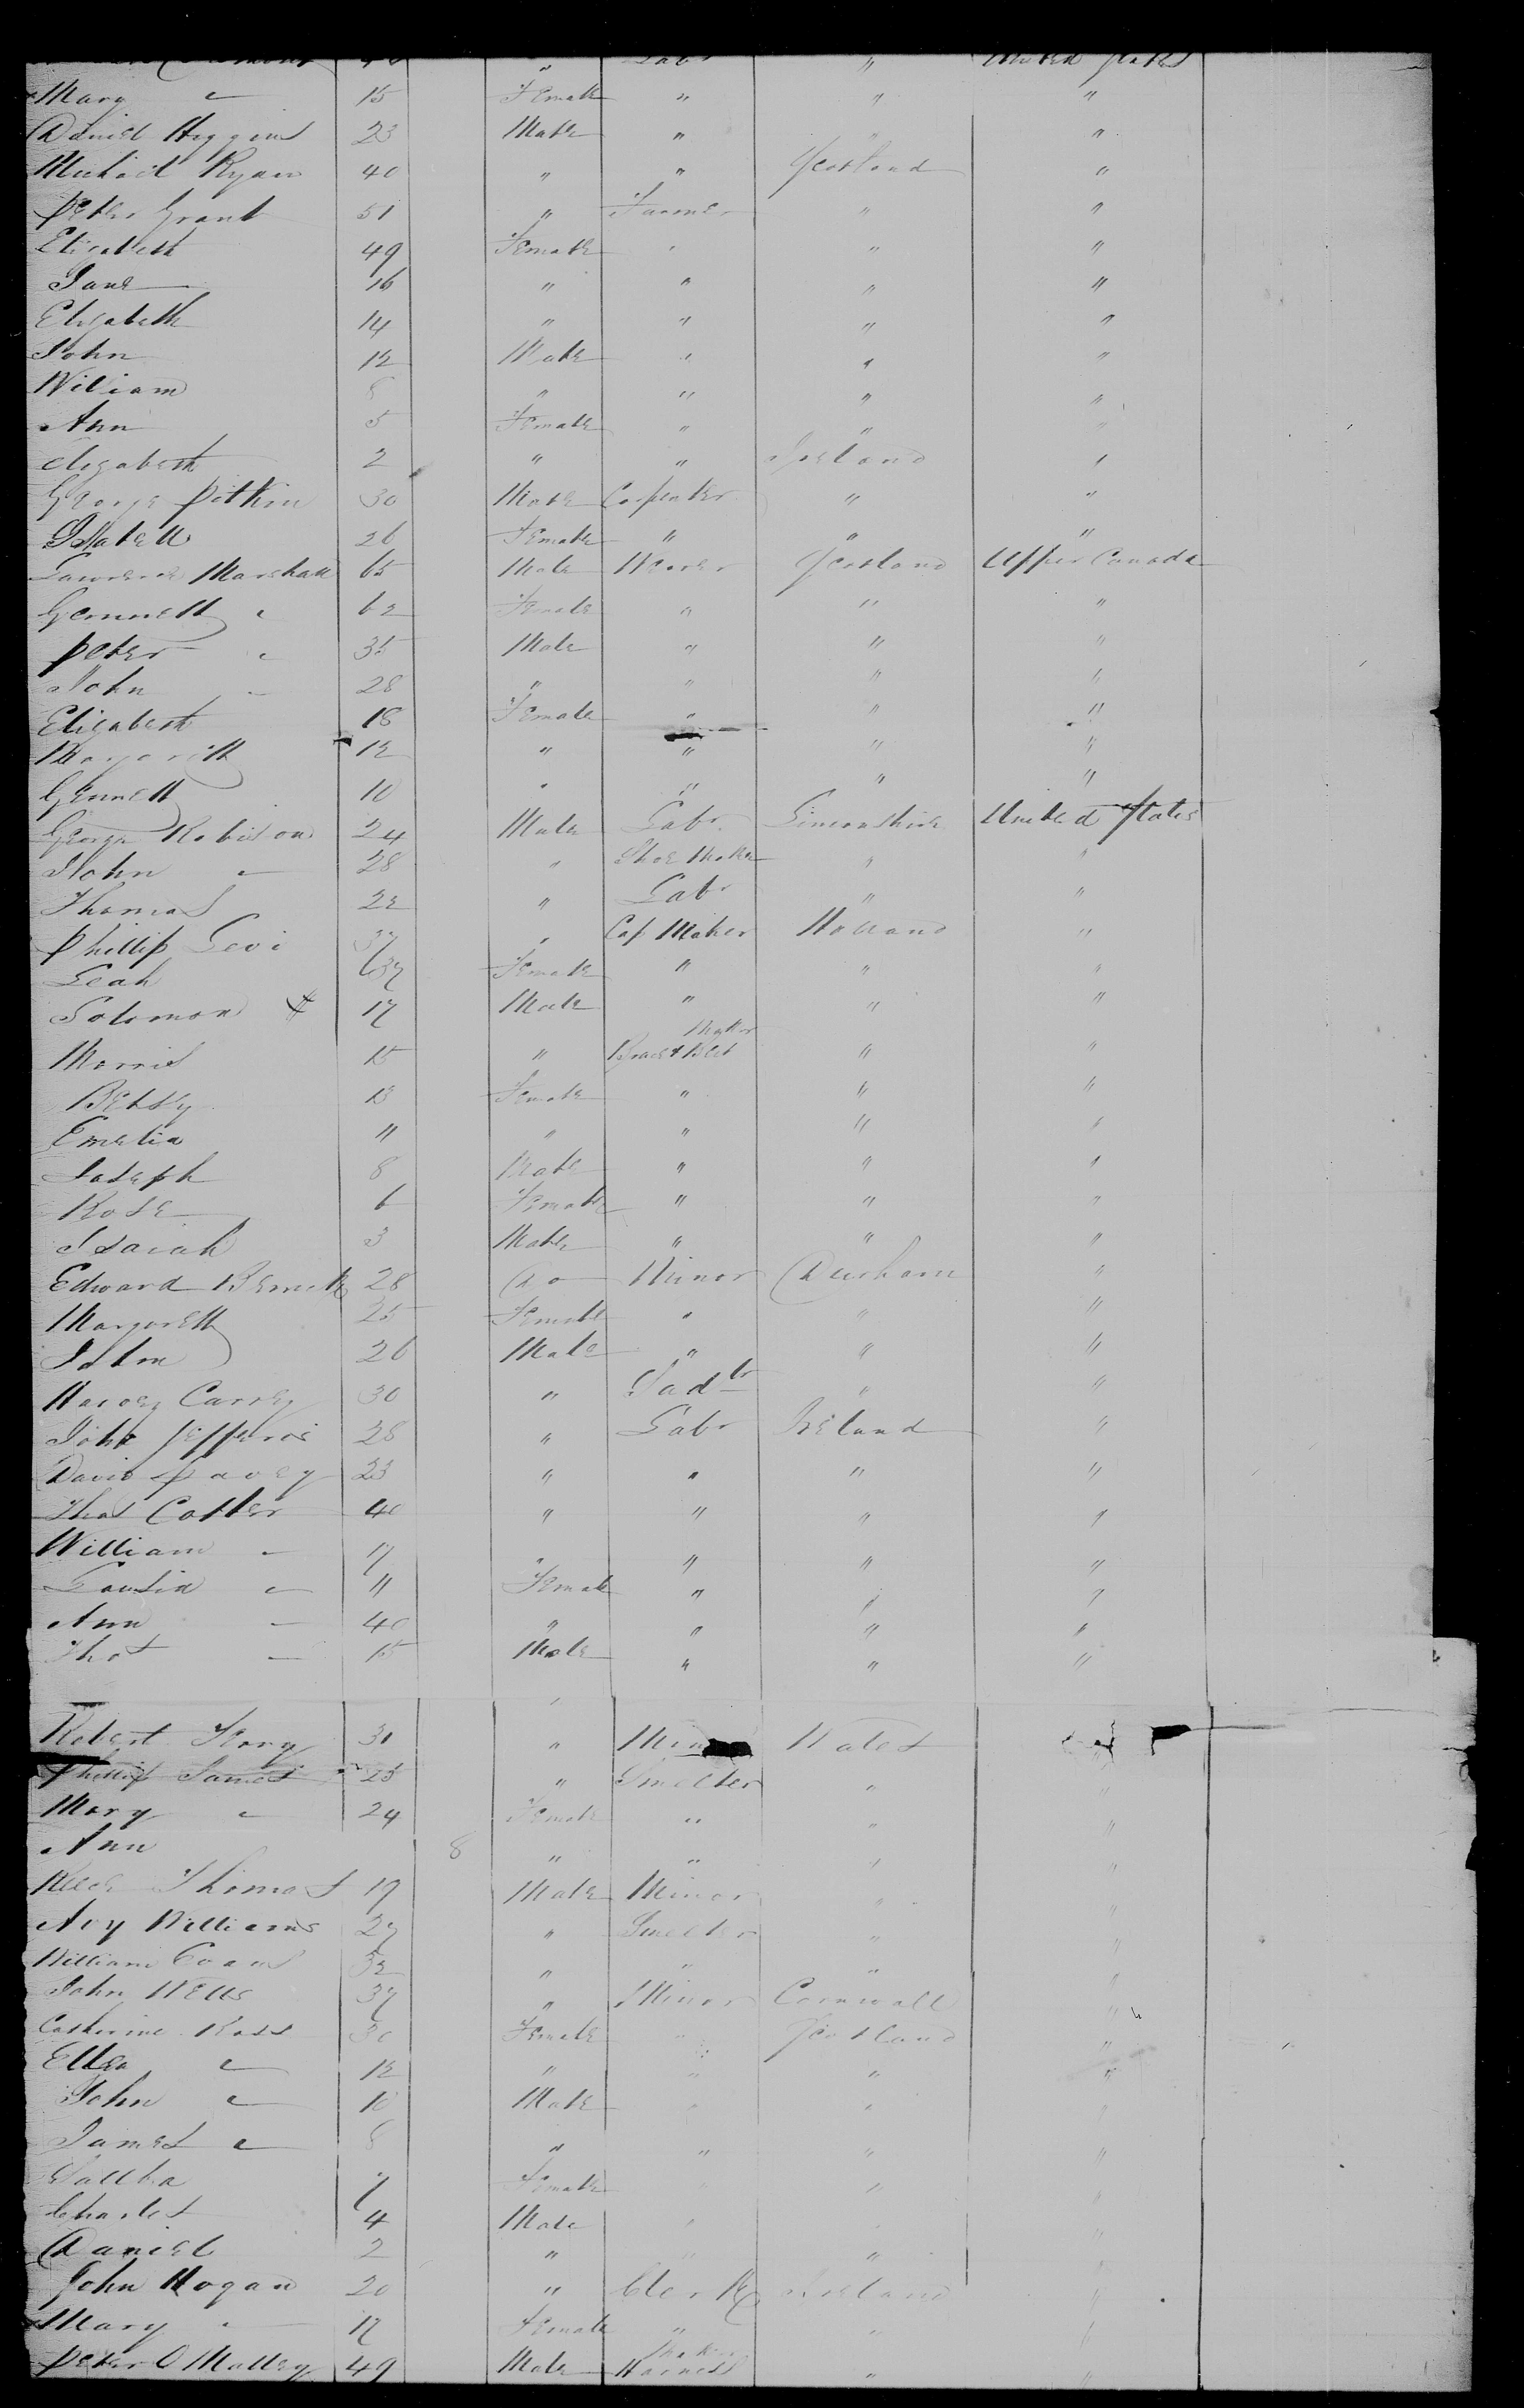 Mary " 15 Female " " "
Daniel Higgins 23 Male " " "
Michael Ryan 40 " " Scotland "
Peter Grant 51 " Farmer " "
Elizabeth 49 Female " " "
Jane 16 " " " "
Elizabeth 14 " " " "
John 12 Male " " "
William 8 " " " "
Ann 5 Female " " "
Elizabeth 2 " " Ireland "
George Pitkin 30 Male Carpenter " "
Isabell 26 Female " " "
Lawrence Marshall 65 Male Wever Scotland Upper Canada
Gennett " 62 Female " " "
Peter " 35 Male " " "
John " 28 " " " "
Elizabeth 18 Female " " "
Margarett 12 " " " "
Gennett 10 " " " "
George Robison 24 Male Labr United States
John " 28 " Shoe Maker " "
Thomas 22 " Labr " "
Phillip Levi 37 " Cap Maker Holland "
Leah 37 Female " " "
Solomon 17 Male " " "
Maker
Morris 15 " " "
Betsy 13 Female " " "
Emelia 11 " " " "
Joseph 8 Male " " "
Rose 6 Female " " "
Isaiah 3 Male " " "
Edward 28 Do Minor Durham "
Margarett 25 Female " " "
John 26 Male " " "
Carrey 30 " Sadlr " "
John Jefferis 28 " Labr Ireland "
David 23 " " " "
Thos Cotter 40 " " " "
William " 17 " " "
Lousia " 11 Female " " "
Ann " 40 " " " "
Thos " 15 Male " " "
Robert 31 " Wales
Phillip James 25 " Smelter " "
Mary " 24 Female " " "
Ann 8 " " " "
Thomas 19 Male Minor " "
Williams 27 " Smelter " "
William Evans 32 " " " "
John Wells 37 " Minor Cornwall "
Catherine Ross 30 Female " Scotland "
Ellen " 12 " " " "
John " 10 Male " " "
James " 8 " " " "
7 Female " " "
Charles 4 Male " " "
Daniel 2 " " " "
John Hogan 20 " Clerk Ireland "
Mary " 17 Female " " "
Peter O Malley 49 Male Harness Maker " "